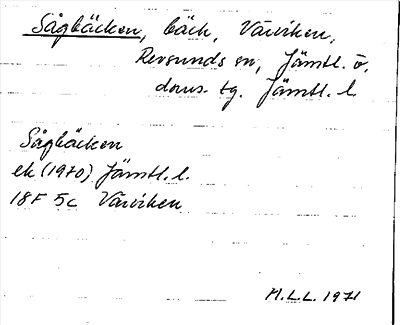 Sågbäcken, bäck, Väviken,
Revsunds sn, Jämtl. ö.
doms. tg. Jämtl. l.
Sågbäcken
ek (1970) Jämtl. l.
18F 5c Väviken
M.L.L. 1971